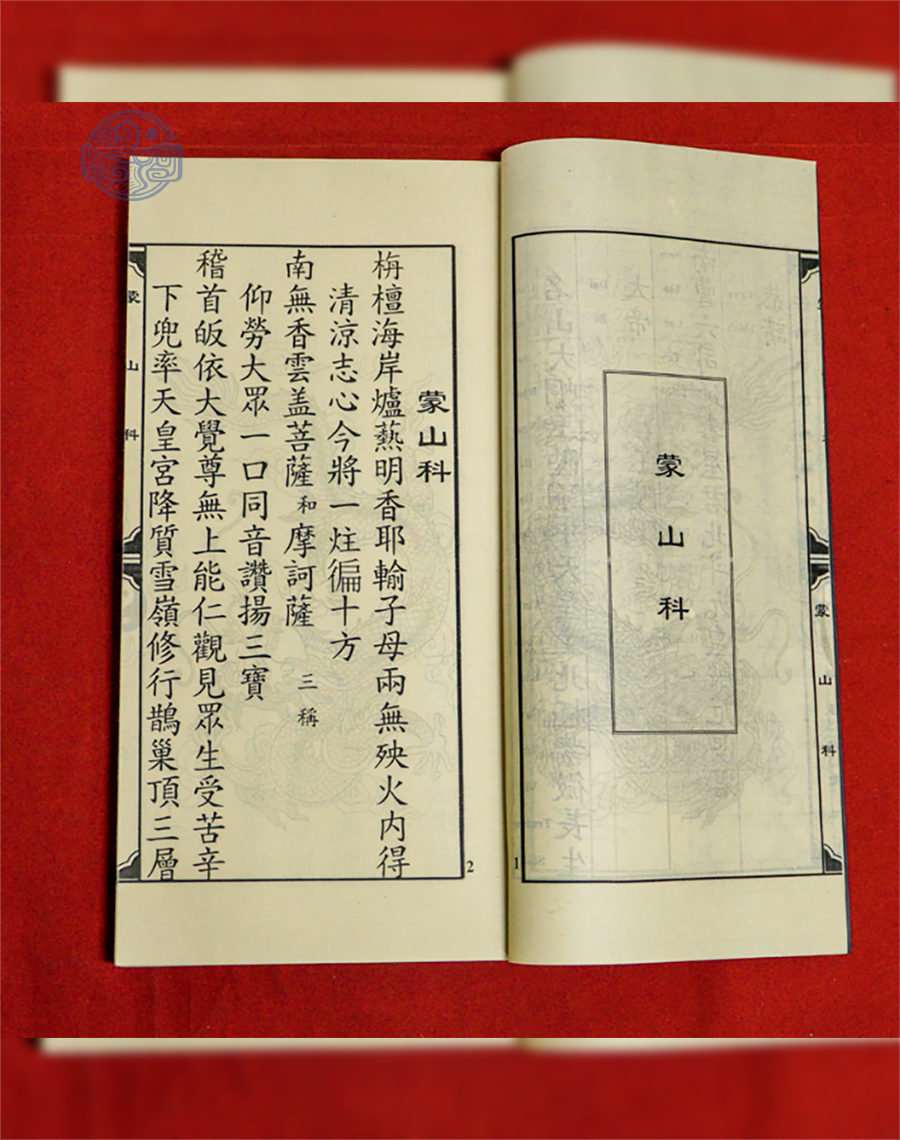 蒙山科
1
蒙山科
蒙山科
栴檀海岸爐爇明香耶輸子母兩無殃火内得
清涼志心今將一炷徧十方
南無香雲盖菩薩和摩訶薩 三稱
仰勞大眾一口同音讚揚三寶
稽首皈依大覺尊無上能仁觀見眾生受苦辛
下兜率天皇宮降質雪嶺修行鵲巢頂三層
2
蒙山科